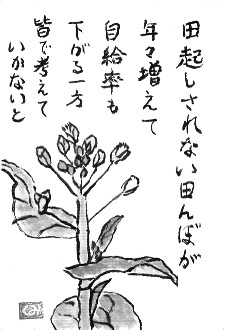 田起しされない田んぼが
年々増えて
自給率も
下がる一方
皆で考えて
いかないと